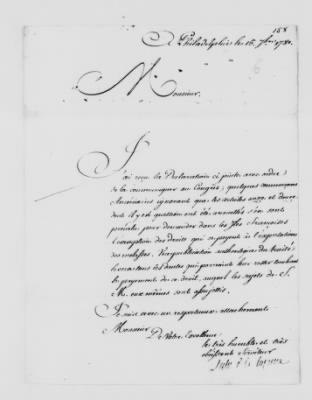 168
A Philadelphie le 16. 7bre 1780.
Monsieur,
J'ai reçu la Déclaration ci jointe avec ordre
de la communiquer au Congrès; quelques commerçans
Américains ignorant que les articles onze et douze
dont il y est question ont été annullés s'en sont
prévalus pour demander dans les Isles Françaises
l'exemption des droits qui se payent à l'exportation
des melasses. La publication authentique du traité
les doutes qui pouvaient leur rester touchant
le payement de ce droit, auquel les sujets de S.
M. eux mêmes sont assujettis.
Je suis avec un respectueux attachement
Monsieur
De Votre Excellence
le très humble et très
obéissant serviteur
le Ch. de la Luzerne